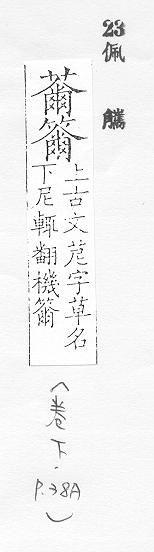 23
佩觿
薾籋
上古文苨字草名
下尼輒翻機籋
(卷下.
P.38A
)